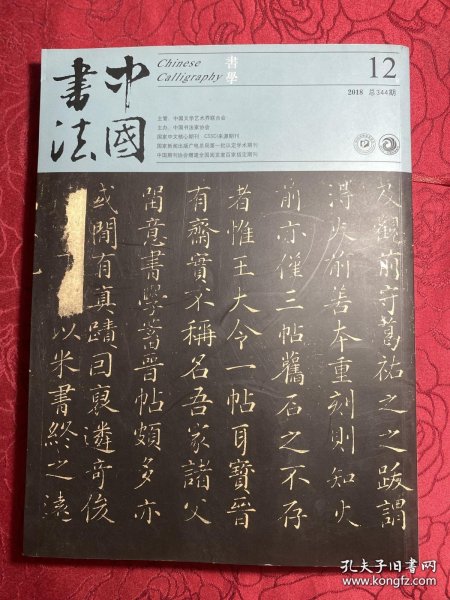 中國
書法
Chinese
Calligraphy
書學
12
2018 总344期
主管：中国文学艺术界联合会
主办：中国书法家协会
国家中文核心期刊 CSSCI来源期刊
国家新闻出版广电总局第一批认定学术期刊
中国期刊协会赠建全国阅览室百家指定期刊
及觀前守葛祐之之跋謂
淂火前善本重刻則知火
前亦僅三帖舊石之不存
者惟王大令一帖耳寶晉
有齋實不稱名吾家諸父
留意書學蓄晉帖頗多亦
或閒有真蹟因裒遴奇俊
以米書終之遠
孔夫子旧书网
www.kongfz.com